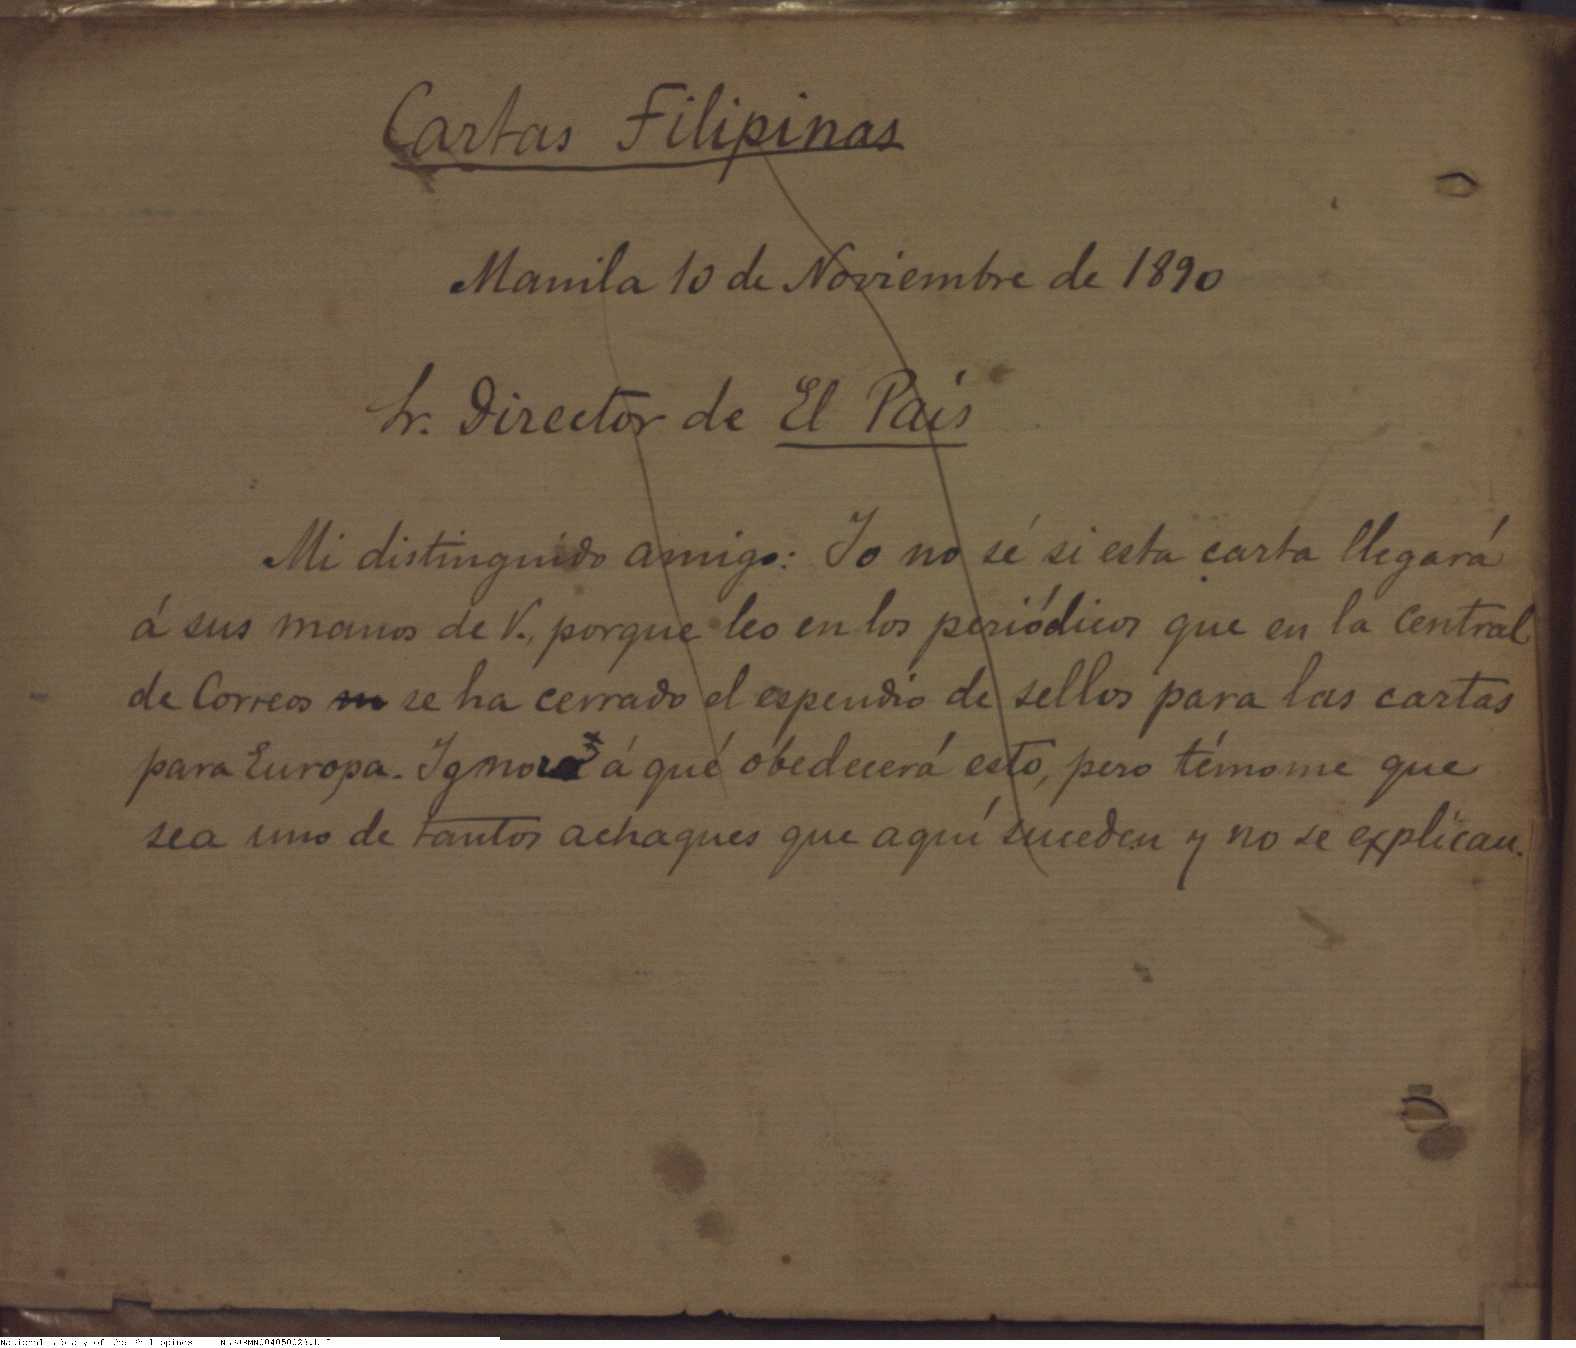 Cartas Filipinas
Manila 10 de Noviembre de 1890
Sr. Director de El País
Mi distinguido amigo: Yo no sé si esta carta llegará
á sus manos de V., porque leo en los periódicos que en la central
de Correos se ha cerrado el espendio de sellos para las cartas
para Europa. Ignoro á qué obedecerá esto, pero témome que
sea uno de tantos achaques que aquí suceden y no se explican.
National Library of the Philippines